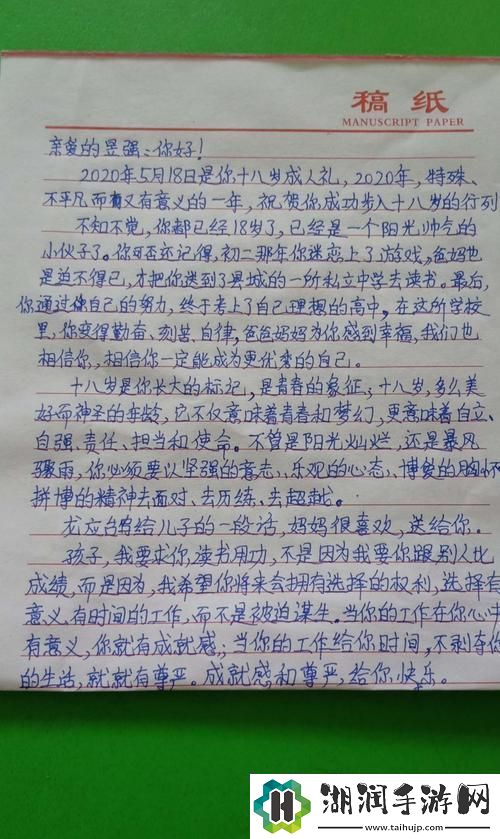 稿纸
MANUSCRIPT PAPER
亲爱的昱强：你好！
2020年5月18日是你十八岁成人礼，2020年，特殊、
不平凡而又有意义的一年，祝贺你成功步入十八岁的行列
不知不觉，你都已经18岁了，已经是一个阳光帅气的
小伙子了。你可否还记得，初二那年你迷恋上了游戏，爸妈也
是迫不得已，才把你送到了县城的一所私立中学去读书。最后，
你通过你自己的努力，终于考上了自己理想的高中，在这所学校
里，你变得勤奋、刻苦、自律，爸爸妈妈为你感到幸福，我们也
相信你，相信你一定能成为更优秀的自己。
十八岁是你长大的标记，是青春的象征，十八岁，多么美
好而神圣的年龄，它不仅意味着青春和梦幻，更意味着自立、
自强、责任、担当和使命。不管是阳光灿烂，还是暴风
骤雨，你必须要以坚强的意志、乐观的心态、博爱的胸怀
拼博的精神去面对、去历练、去超越。
龙应台写给儿子的一段话，妈妈很喜欢，送给你。
孩子，我要求你读书用功，不是因为我要你跟别人比
成绩，而是因为，我希望你将来会拥有选择的权利，选择有
意义、有时间的工作，而不是被迫谋生。当你的工作在你心中
有意义，你就有成就感；当你的工作给你时间，不剥夺你
的生活，就就有尊严。成就感和尊严，给你快乐。
湖润手游网
www.taihujp.com